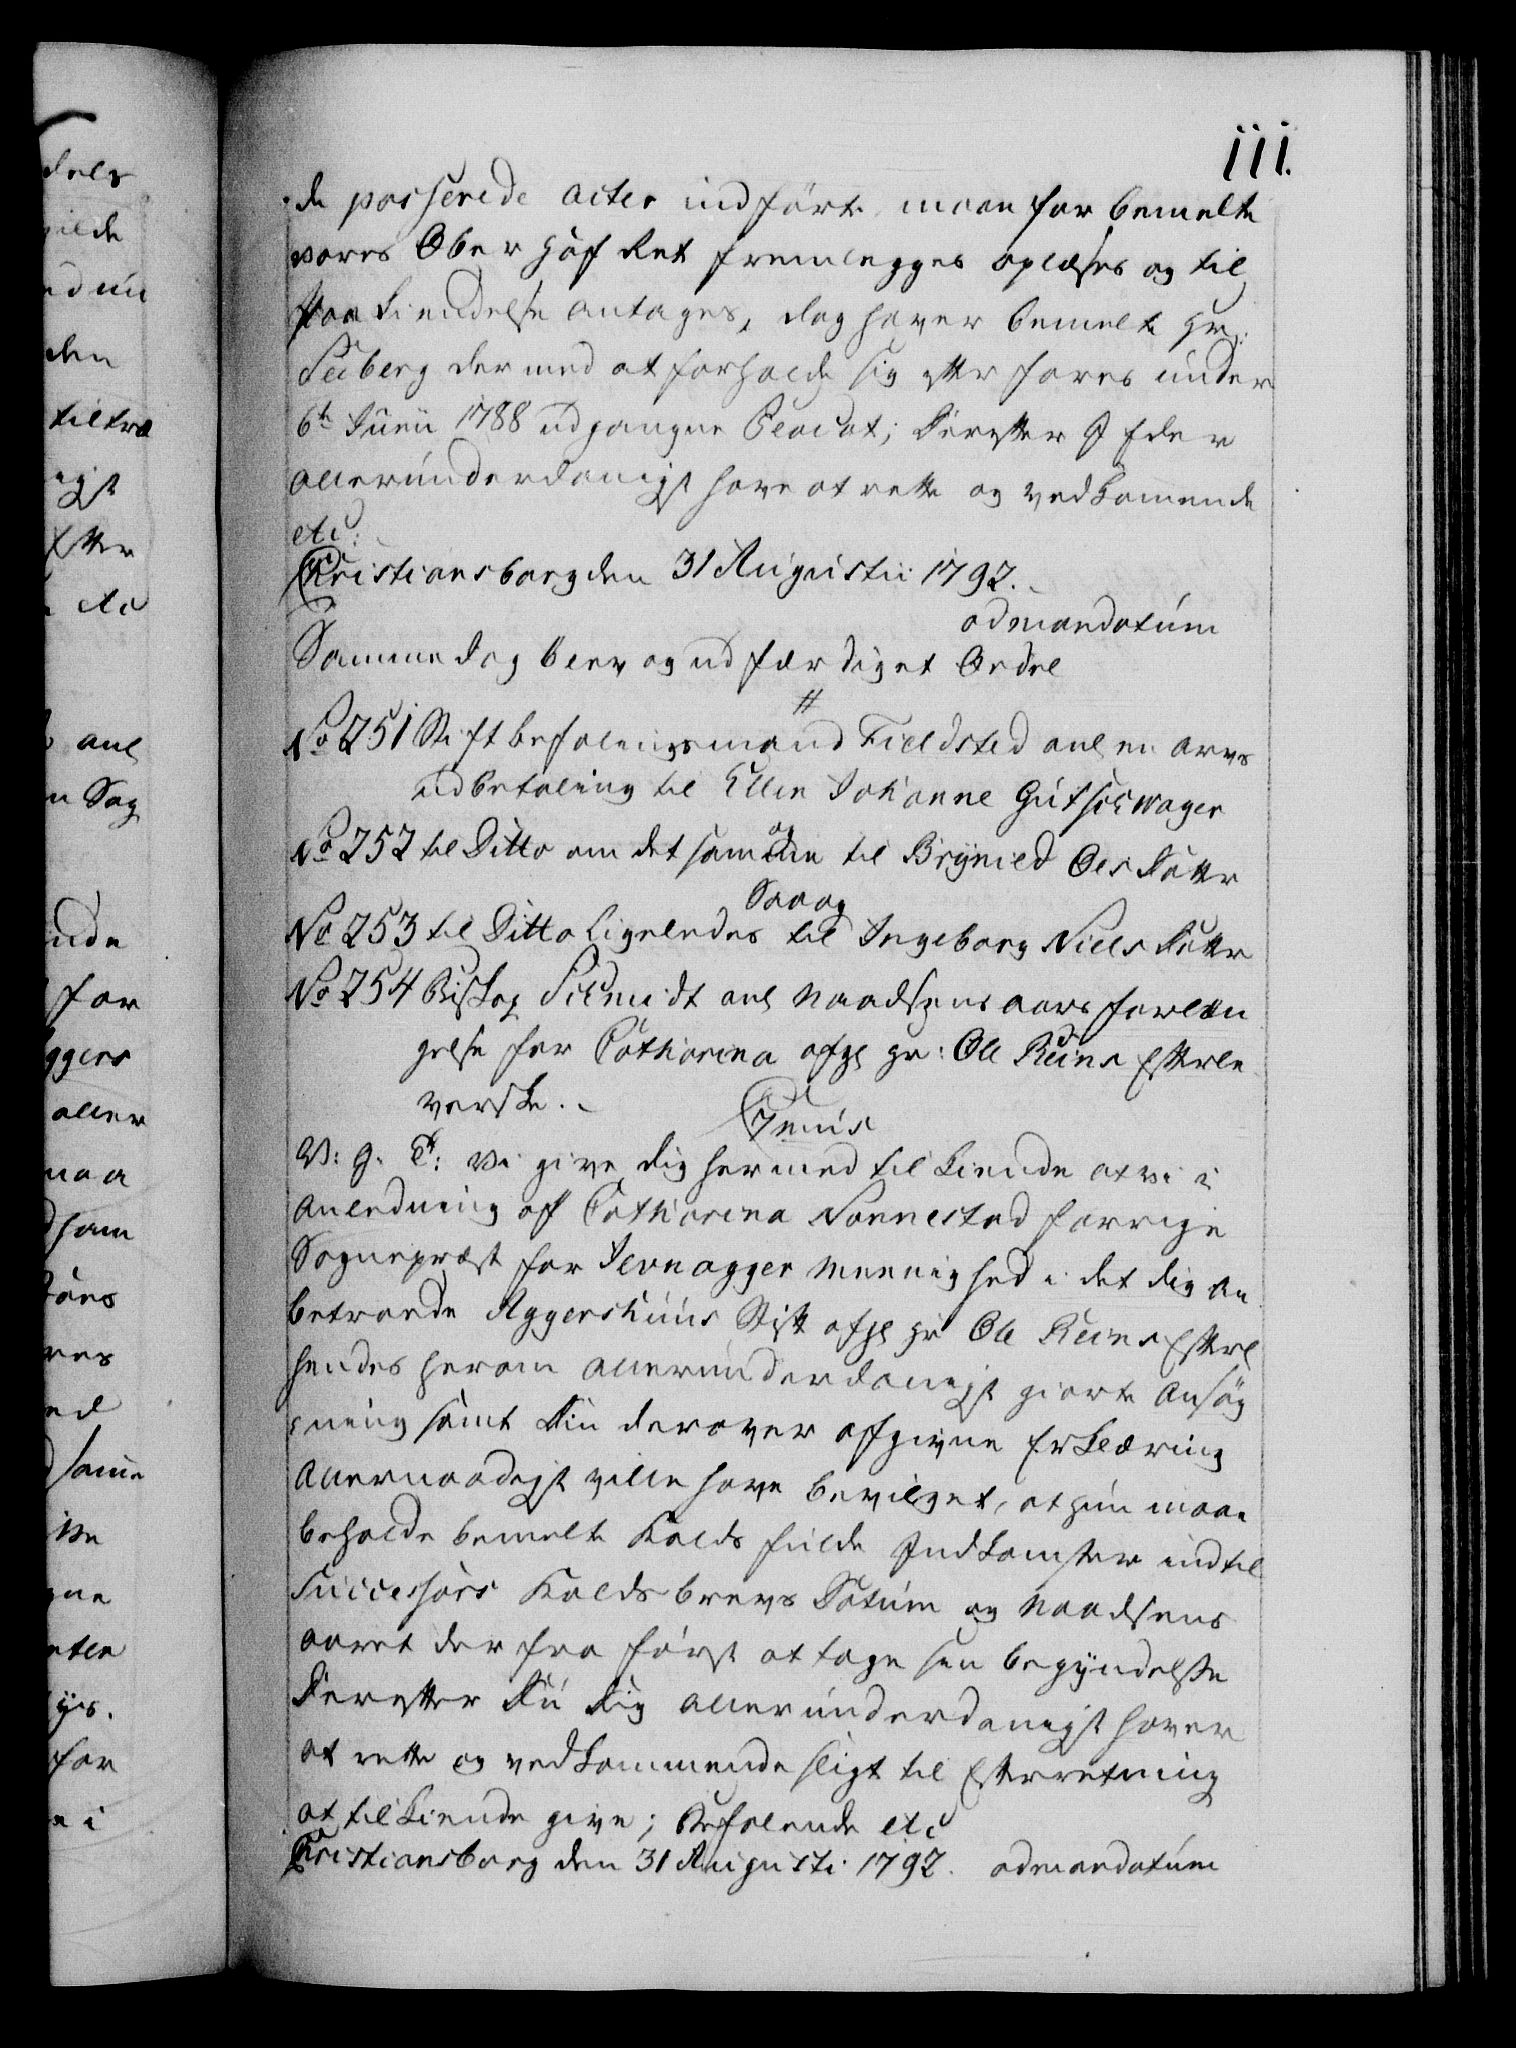 111.
de passerede acter indført maae for bemelte
vores Ober Hof Ret fremlegges oplæses og til
Paakiendelse antages, dog haver bemelte Hr:
Seiberg dermed at forholde sig efter vores under
6te Junii 1788 udgangne Placat; Derefter I Eder
allerunderdanigst have at rette og vedkomende
etc:
Christiansborg den 31 Augustii 1792.
admandatum
Samme dag blev og udfærdiget Ordre
No 251 Stiftbefalingsmand Fieldsted anl en arvs
udbetaling til Ellen Johanne Gutschwager
No 252 til Ditto om det samme og til Brynild Ols Datter
No 253 til Ditto ligeledes Saa og til Ingeborg Niels Datter
No 254 Biskop Schmidt anl Naadsens aars forlæn
gelse for Catharina afg Hr: Ole Reins Efterle
verske.
Genus
V: g: T: Vi give dig hermed til kiende at vi i
Anledning af Catharina Sonnestad forrige
Sognepræst for Jevnagger Menighed i det dig an
betroede Aggershuus Stift afg Hr Ole Reins Efterl
hendes herom allerunderdanigst giorte Ansøg
ning samt Din derover afgivne Erklæring
Allernaadigst ville have bevilget, at hun maae
beholde bemelte Kalds fulde Indkomster indtil
Successors Kalds brevs Datum og Naadsens
aaret der fra først at tage sin begyndelse
Derefter Du Dig allerunderdanigst haver
at rette og vedkommende sligt til Efterretning
at tilkiende give; Befalende etc
Christiansborg den 31 Augusti 1792. admandatum